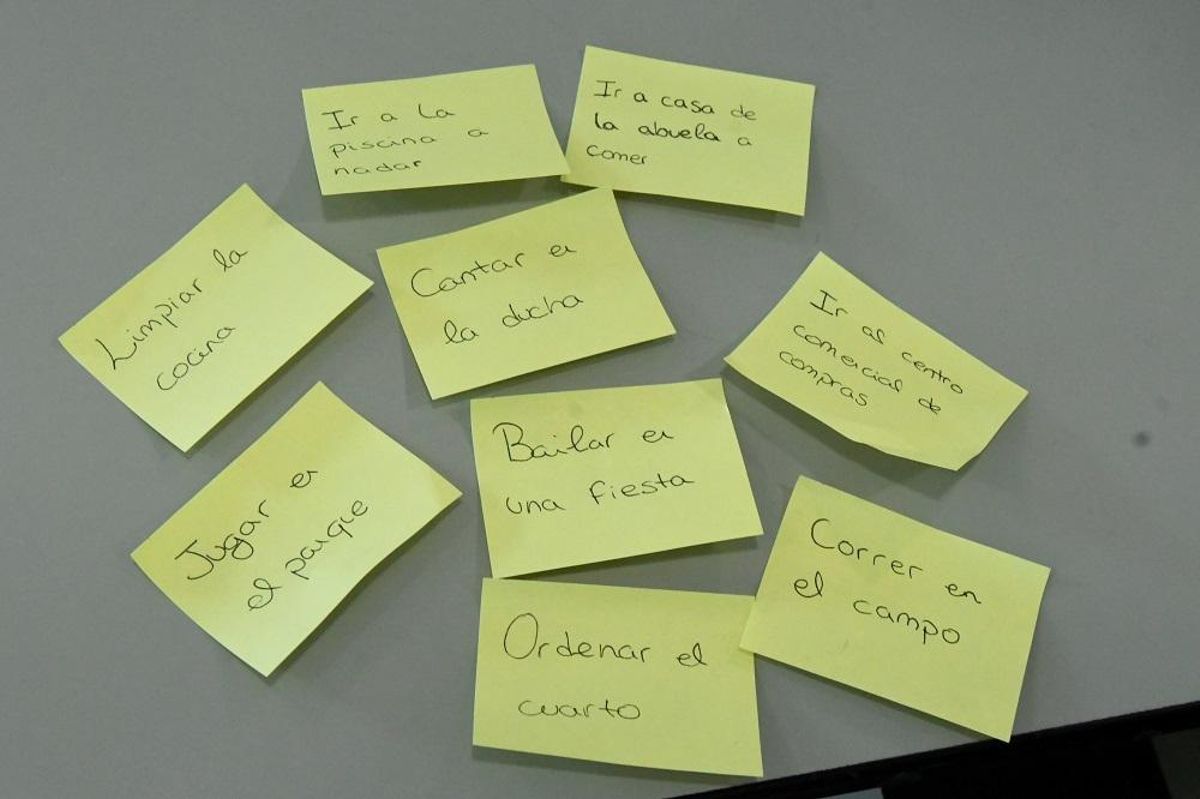 Ir a la
piscina a
nadar
Ir a casa de
la abuela a
comer
Limpiar la
cocina
Cantar en
la ducha
Ir al centro
comercial de
compras
Jugar en
el parque
Bailar en
una fiesta
Correr en
el campo
Ordenar el
cuarto